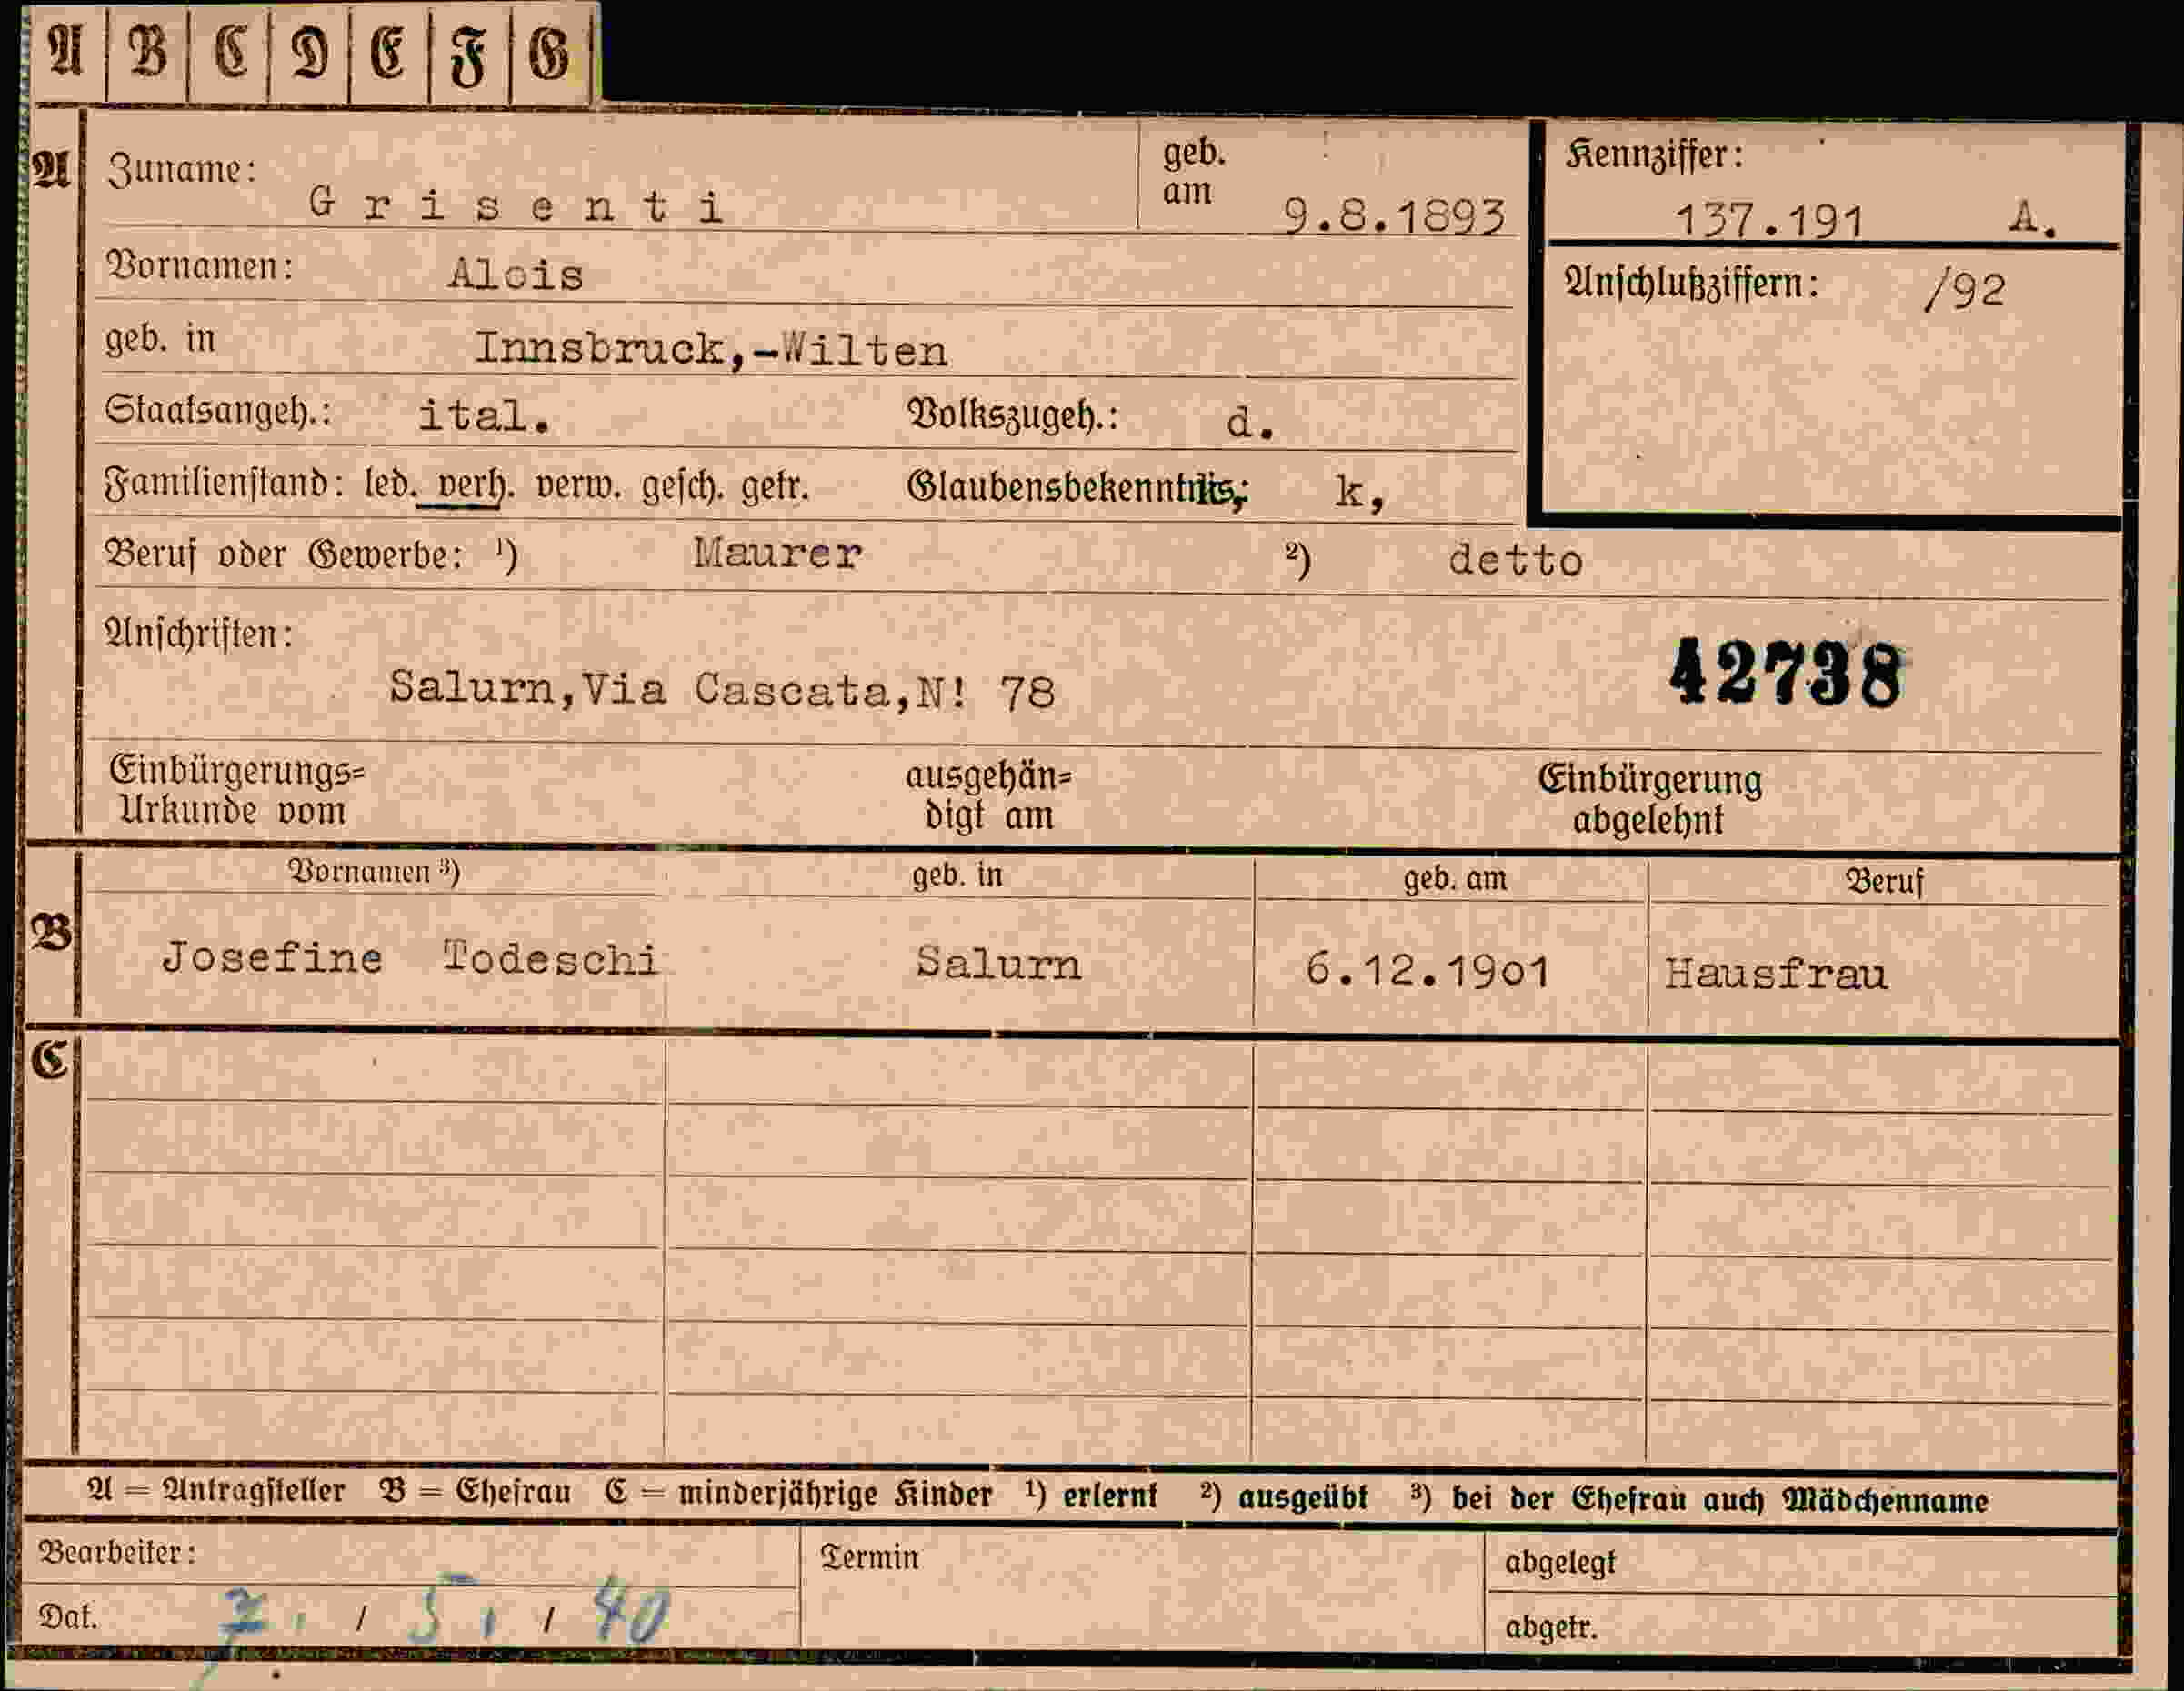 A B C D E F G
A Zuname: Grisenti geb. am 9.8.1893 Kennziffer: 137.191 A.
Vornamen: Alois Anschlußziffern: /92
geb. in Innsbruck,-Wilten
Staatsangeh.: ital. Volkszugeh.: d.
Familienstand: led. verh. verw. gesch. getr. Glaubensbekenntnis: k,
Beruf oder Gewerbe: ¹) Maurer ²) detto
Anschriften:
Salurn,Via Cascata,N! 78 42738
Einbürgerungs= ausgehän= Einbürgerung
Urkunde vom digt am abgelehnt
Vornamen ³) geb. in geb. am Beruf
B Josefine Todeschi Salurn 6.12.1901 Hausfrau
C
A = Antragsteller B = Ehefrau C = minderjährige Kinder ¹) erlernt ²) ausgeübt ³) bei der Ehefrau auch Mädchenname
Bearbeiter: Termin abgelegt
Dat. 7. / 5. / 40 abgetr.